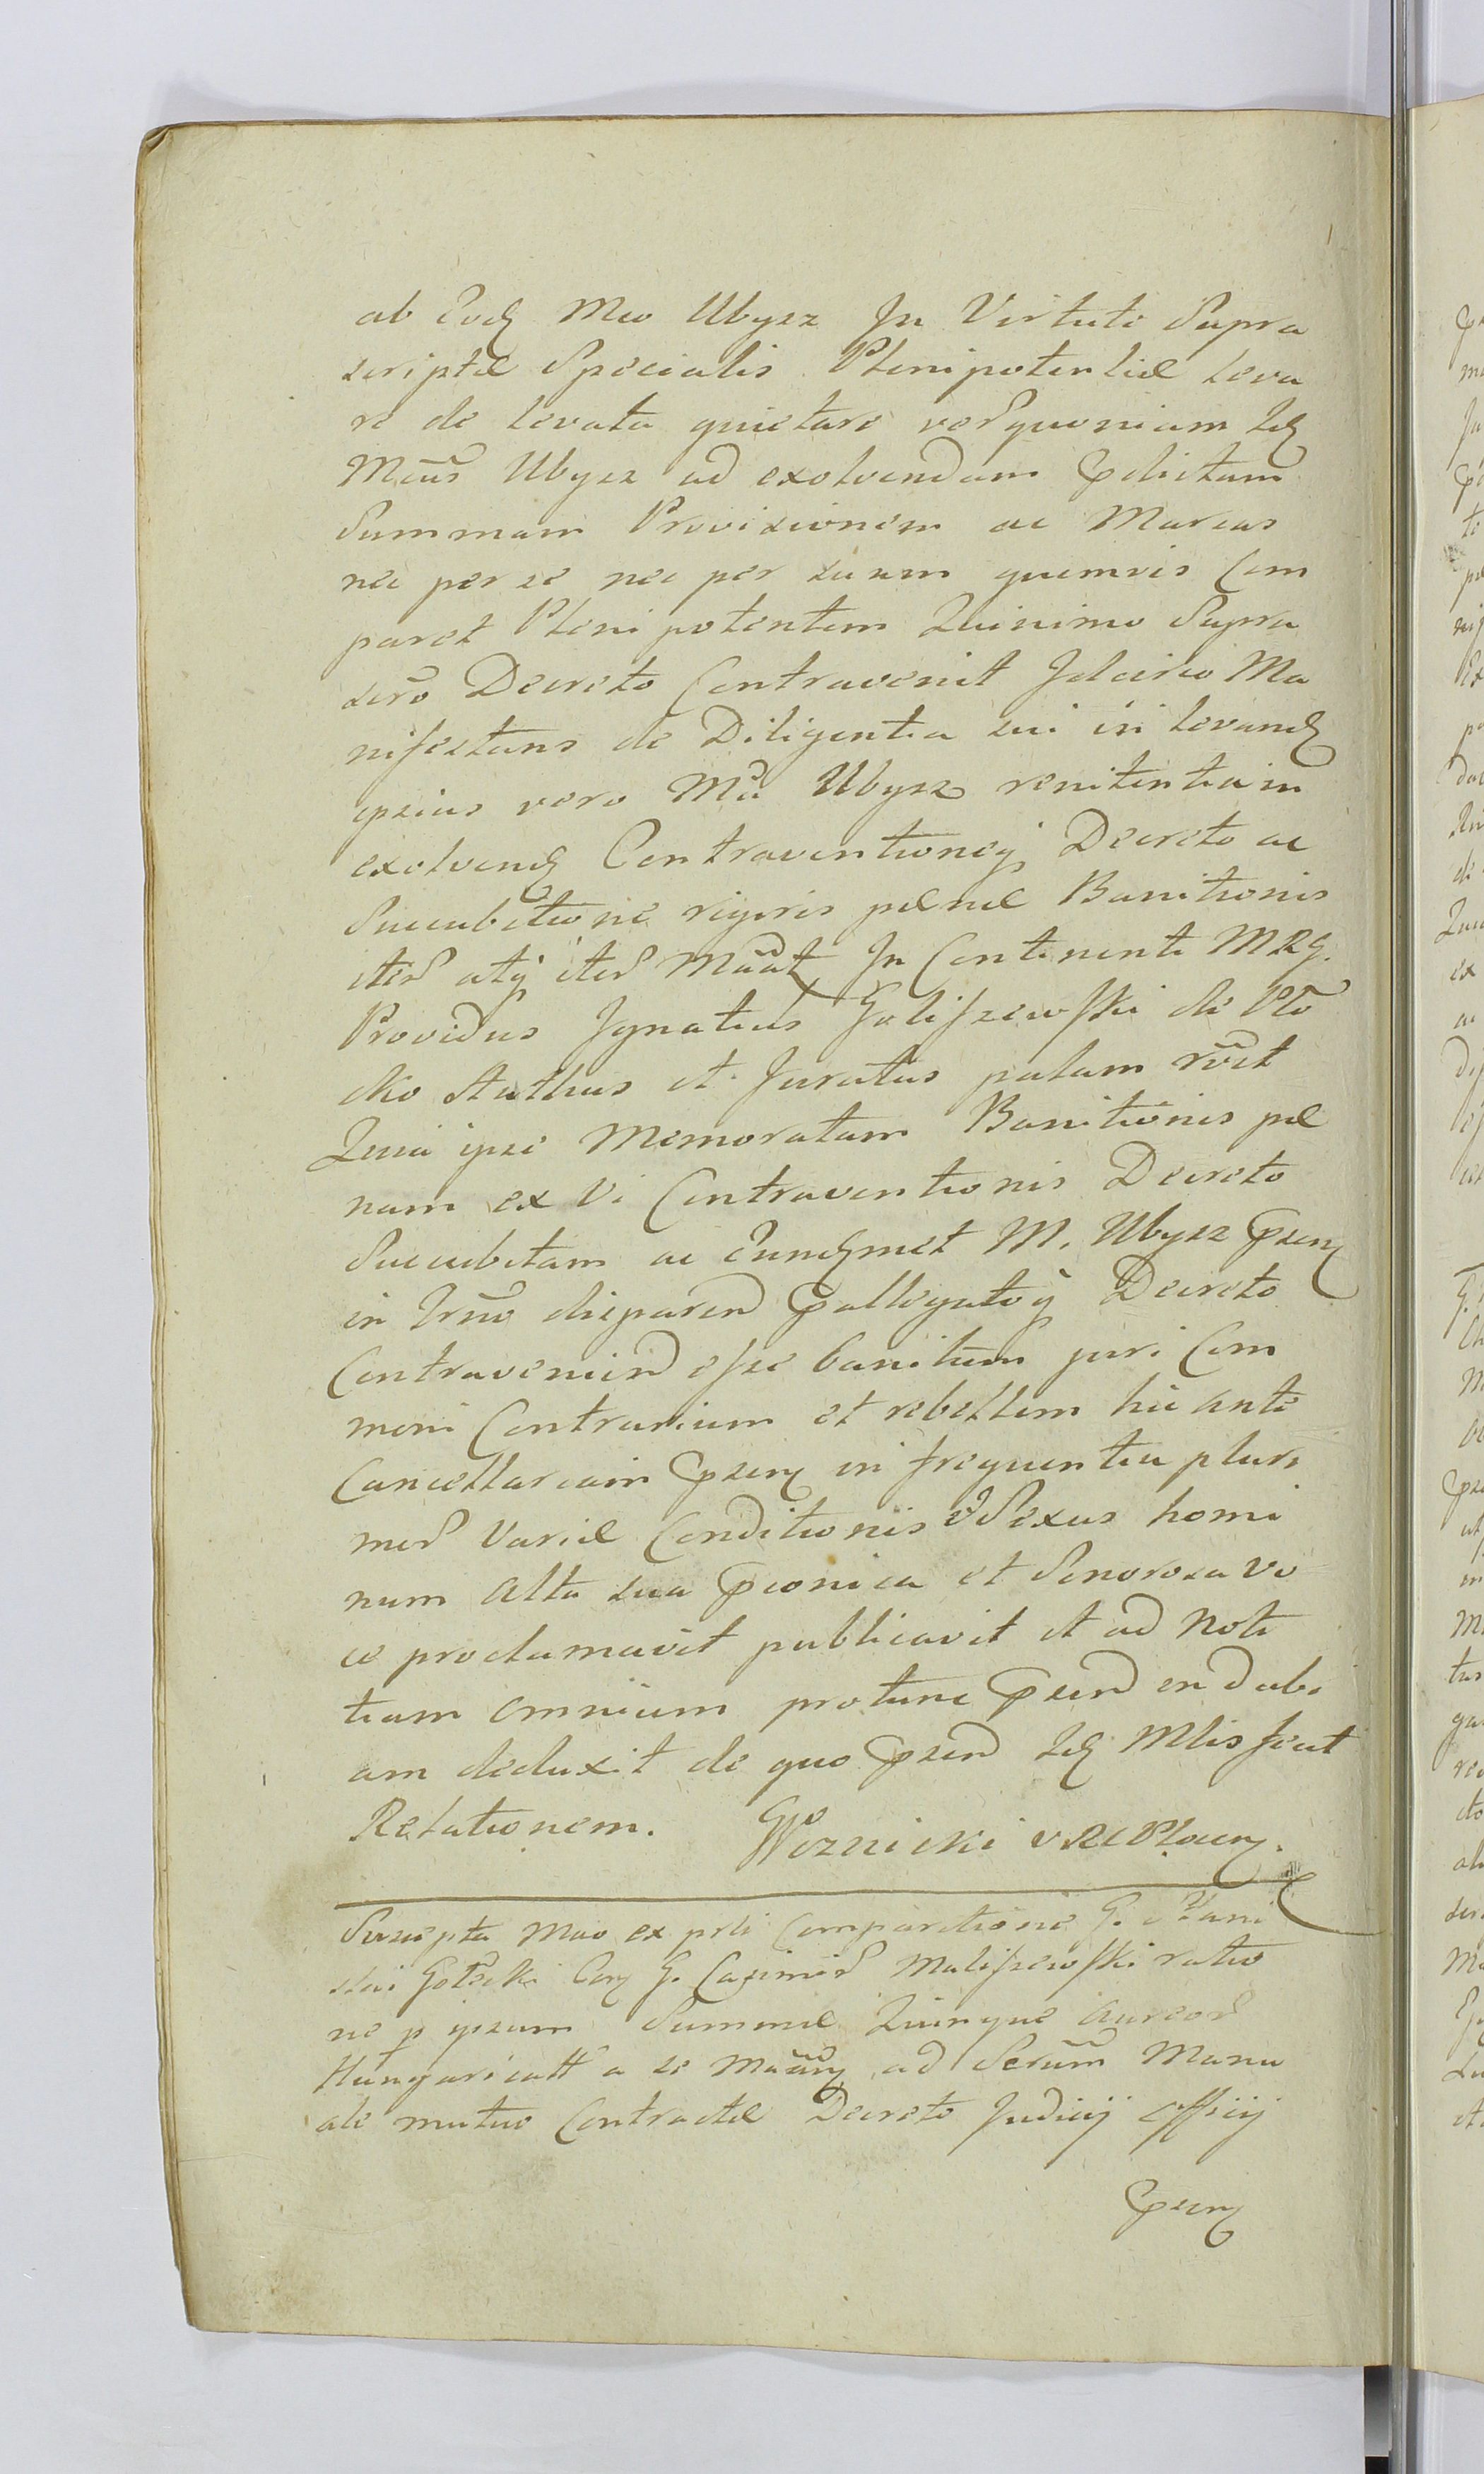 ab Eod Mco Ubysz In Virtute Supra
scriptæ Specialis Plenipotentiæ leva
re de levata quietare verũ quoniam Id
Mcus Ubysz ad exolvendam Pdictam
Summam Provisionem ac Marcas
nec per se nec per suum quemvis Com
paret Plenipotentem Quinimo Supra
scro Decreto Contravenit Idcirco Ma
nifestans de Diligentia sui in levand
ipsius vero Mci Ubysz renitentia in
exolvend Contraventioneq Decreto ac
Succubitione rigoris pænæ Banitionis
iter atq iter Mãat In Continenti MRG.
Providus Ignatius Goliszewski de Plo
cko Stathus et Juratus palam rõvit
Quia ipse Memoratam Banitionis pæ
nam ex Vi Contraventionis Decreto
Succubitam ac Eundmet M. Ubysz Psen
in Trno disparen Pallegatoq Decreto
Contravenien esse banitum juri Com
muni Contrarium et rebellem hic ante
Cancellariam Psen in frequentia pluri
mor Variæ Conditionis & Sexus homi
num alta sua Pconica et Sonorosa vo
ce proclamavit publicavit et ad Noti
tiam omnium protunc Psen indubi
am deduxit de quo Psen Id Mlis fecit
Relationem. Woznicki VRC Plocen.
Suscepta Mao ex prti Comparitione G.
Gotecki Con G. Casimir Maliszewski ratio
ne p ipsum Summæ Quinque Aureor
Hungaricall a se Mãan ad Scrum Manu
ale mutuo Contractæ Decreto Judicij Officij
Psen